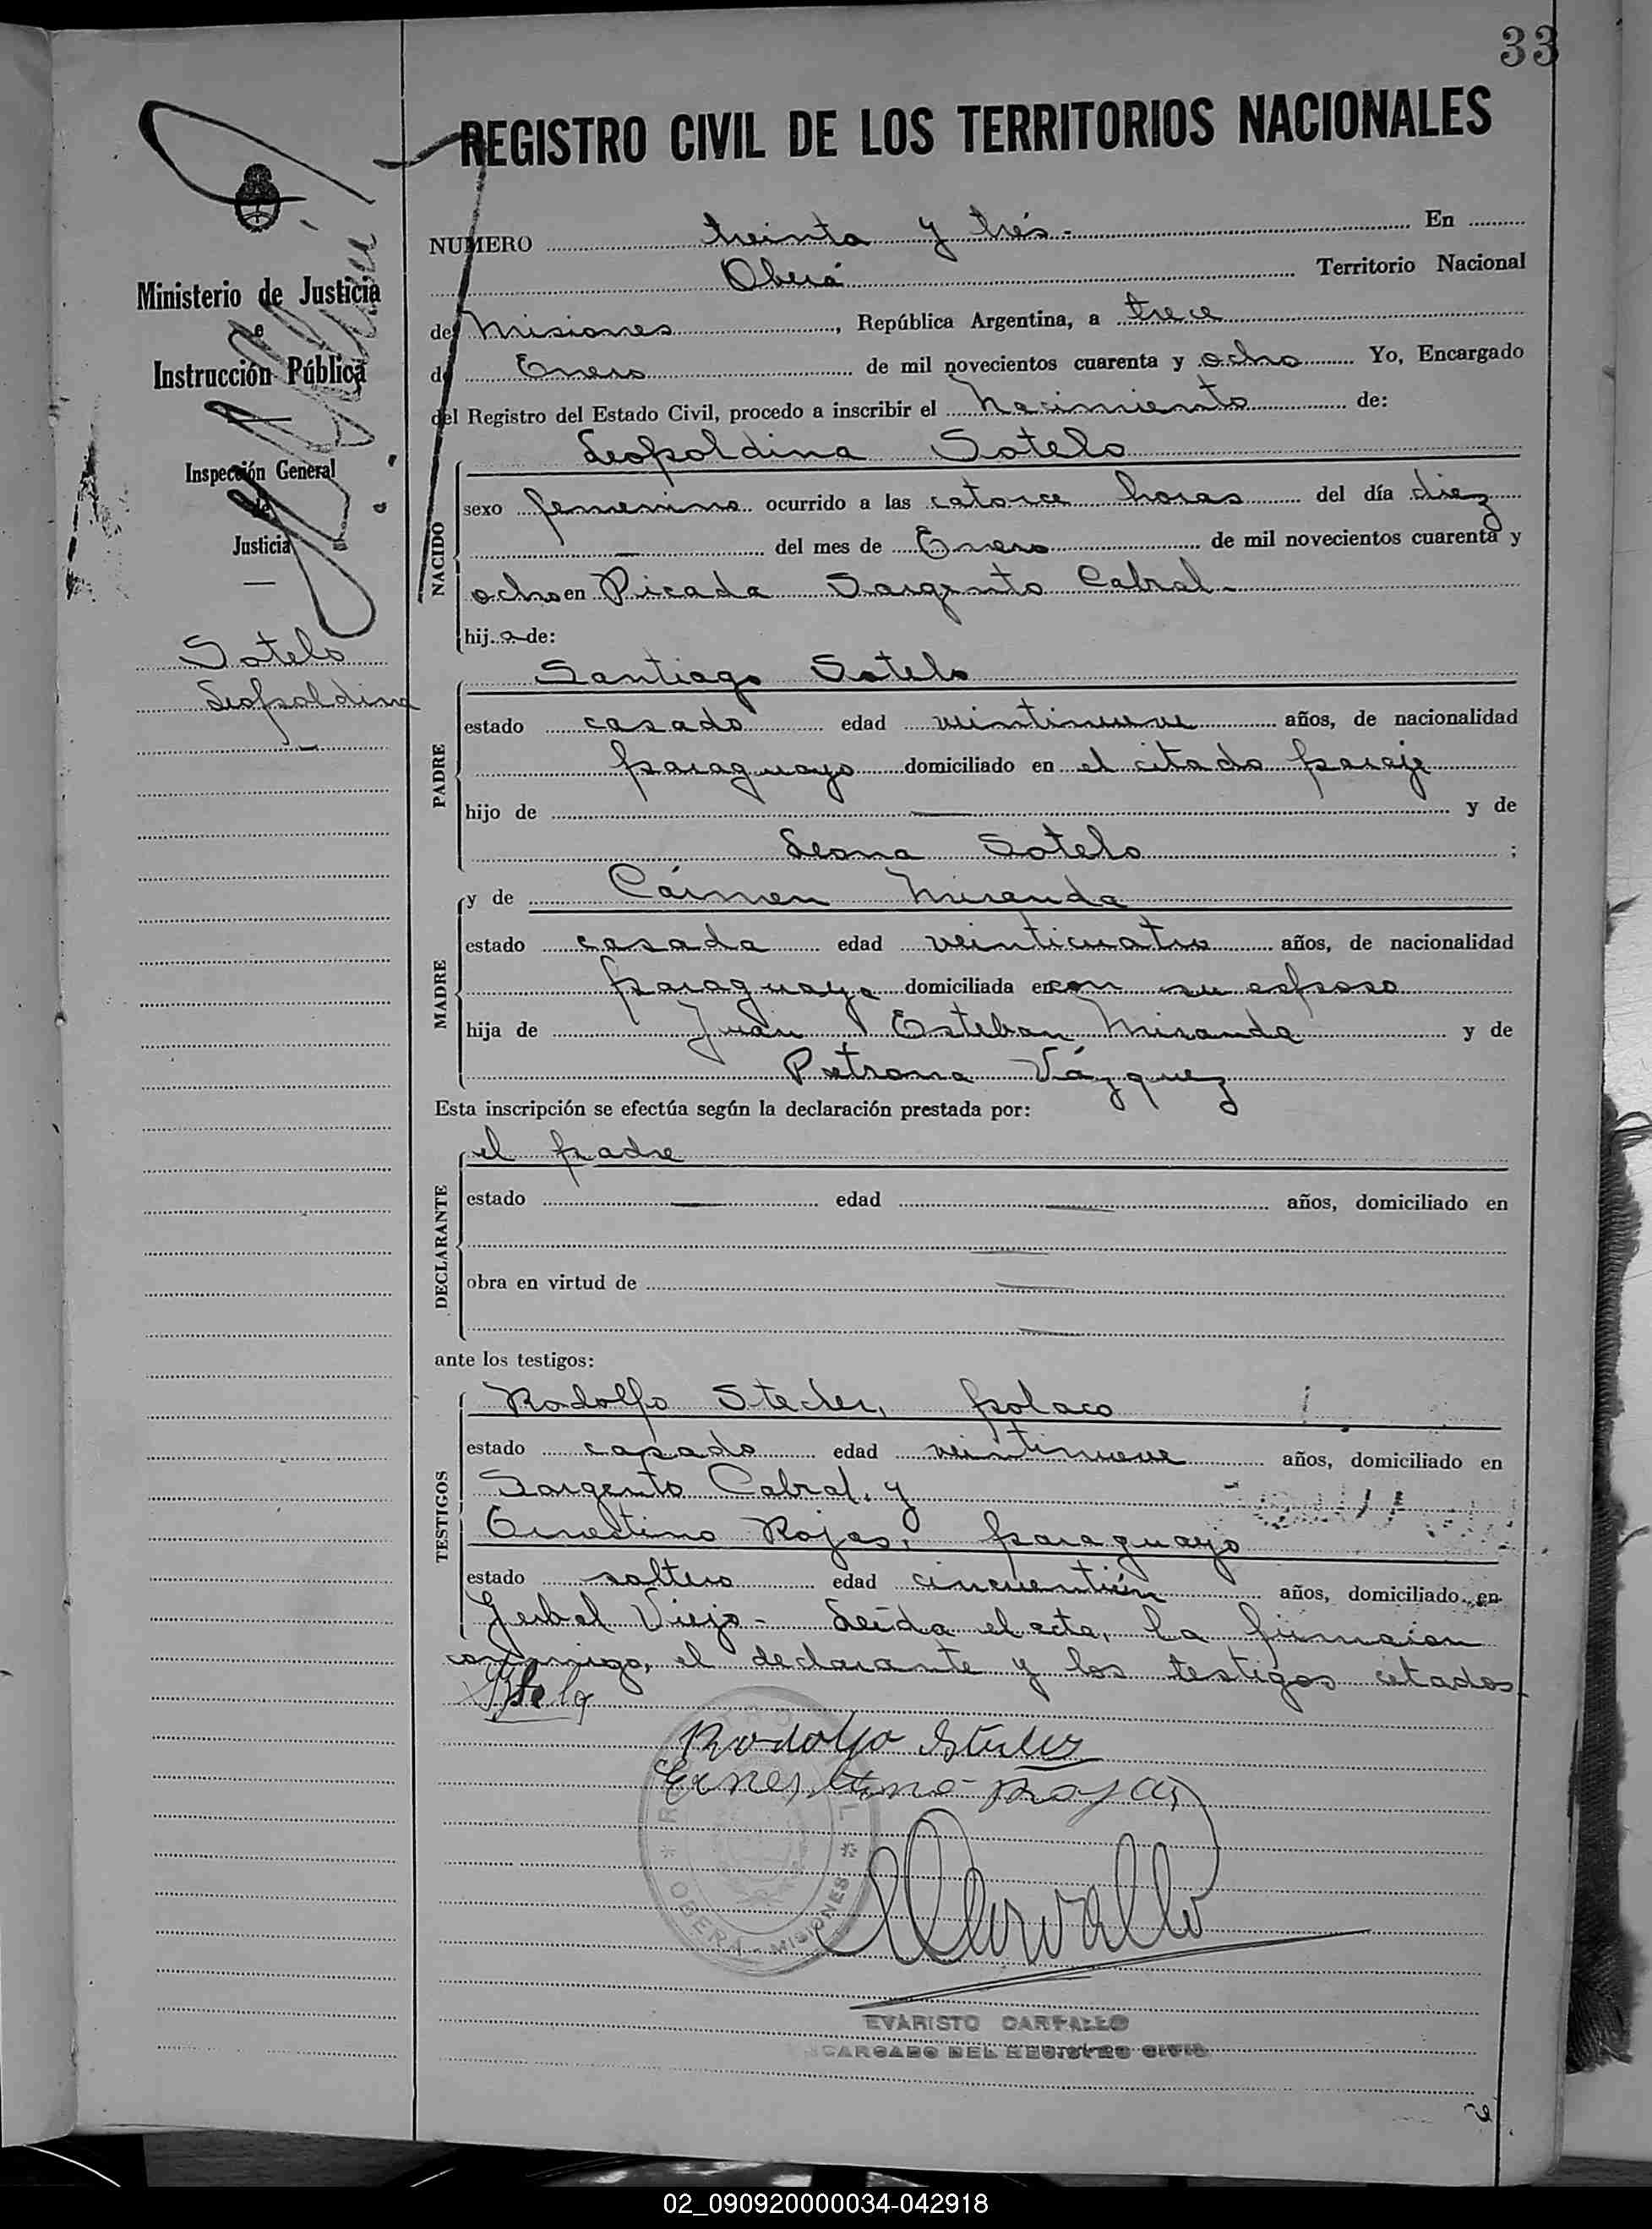 33
REGISTRO CIVIL DE LOS TERRITORIOS NACIONALES
Ministerio de Justicia
e
Instrucción Pública
Inspección General
de
Justicia
Sotelo
Leopoldina
NUMERO treinta y trés.- En
Oberá Territorio Nacional
de Misiones, República Argentina, a trece
de Enero de mil novecientos cuarenta y ocho Yo, Encargado
del Registro del Estado Civil, procedo a inscribir el Nacimiento de:
NACIDO
Leopoldina Sotelo
sexo femenino ocurrido a las catorce horas del día diez
del mes de Enero de mil novecientos cuarenta y
ocho en Picada Sargento Cabral.-
hij a de:
PADRE
Santiago Sotelo
estado casado edad veintinueve años, de nacionalidad
paraguayo domiciliado en el citado paraje
hijo de — y de
Leona Sotelo ;
MADRE
y de Cármen Miranda
estado casada edad veinticuatro años, de nacionalidad
paraguaya domiciliada en con su esposo
hija de Juan Esteban Miranda y de
Petrona Vázquez
Esta inscripción se efectúa según la declaración prestada por:
DECLARANTE
el padre
estado — edad — años, domiciliado en
obra en virtud de —
ante los testigos:
TESTIGOS
Rodolfo Steder, polaco
estado casado edad veintinueve años, domiciliado en
Sargento Cabral, y
Ernestino Rojas, paraguayo
estado soltero edad cincuentiún años, domiciliado en
Yerbal Viejo - Leída el acta, la firmaron
conmigo, el declarante y los testigos citados
Sotelo
Rodolfo
Ernestino Rojas
OBERA - MISIONES
EVARISTO CARVALLO
ENCARGADO DEL REGISTRO CIVIL
02_090920000034-042918